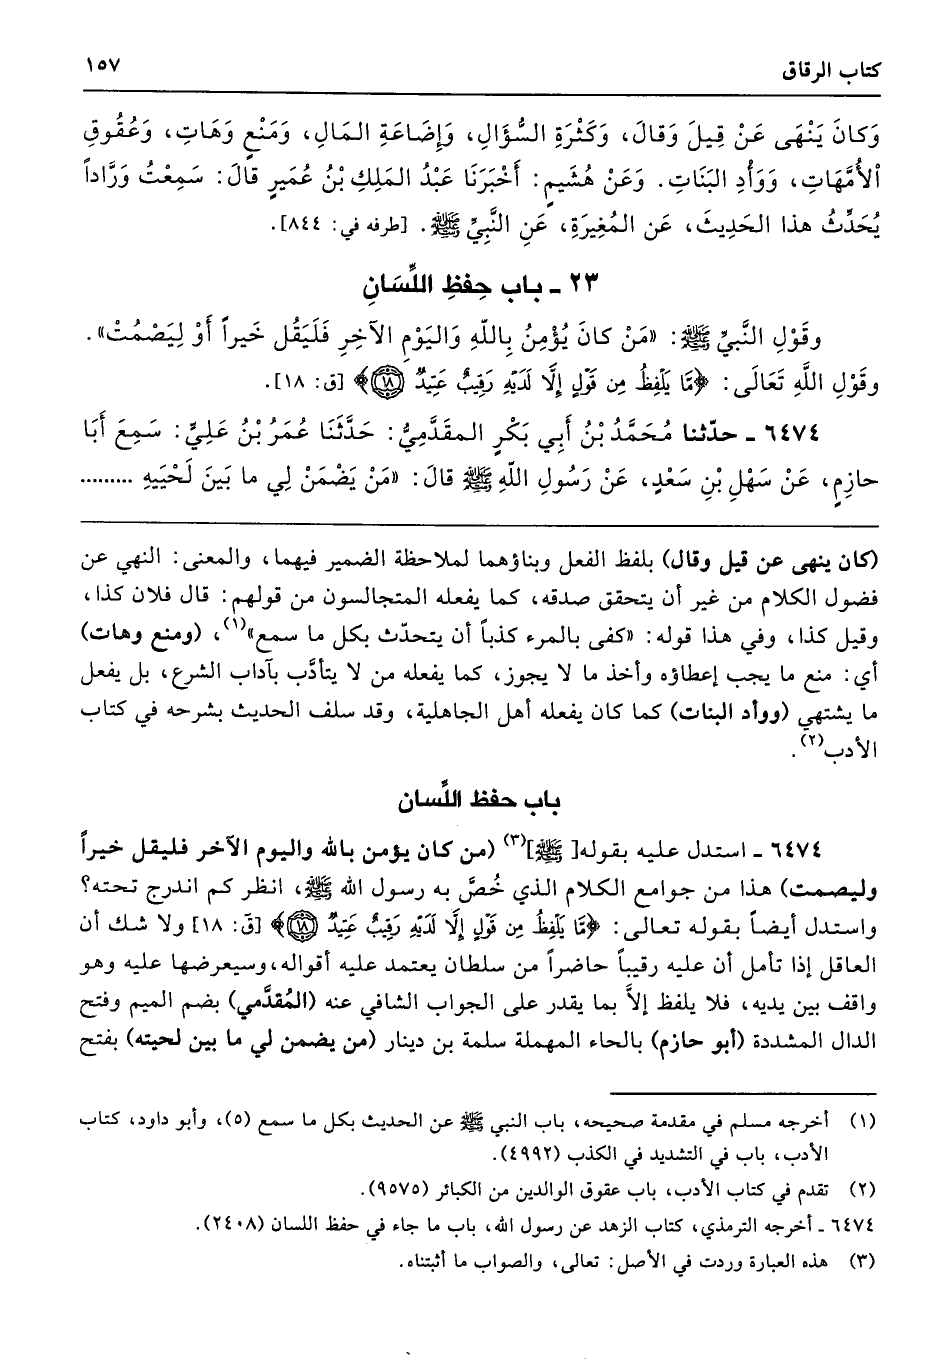 كتاب الرقاق ١٥٧
وَكانَ يَنْهَى عَنْ قِيلَ وَقالَ، وَكَثْرَةِ السُّؤَالِ، وَإِضَاعَةِ المَالِ، وَمَنْعٍ وَهَاتِ، وَعُقُوقِ
اْلأُمَّهَاتِ، وَوَأْدِ البَنَاتِ. وَعَنْ هُشَيمٍ: أَخْبَرَنَا عَبْدُ المَلِكِ بْنُ عُمَيرٍ قالَ: سَمِعْتُ وَرَّاداً
يُحَدِّثُ هذا الحَدِيثَ، عَنِ المُغِيرَةِ، عَنِ النَّبِيِّ ﷺ. [طرفه في: ٨٤٤].
٢٣ ـ باب حِفظِ اللِّسَانِ
وقَوْلِ النَّبِيِّ ﷺ: «مَنْ كانَ يُؤْمِنُ بِاللّهِ وَاليَوْمِ الآخِرِ فَلَيَقُل خَيراً أَوْ لِيَصْمُتْ».
وقَوْلِ اللَّهِ تَعَالَى: ﴿مَّا يَلْفِظُ مِن قَوْلٍ إِلَّا لَدَيْهِ رَقِيبٌ عَتِيدٌ ۝١٨﴾ [ق: ١٨].
٦٤٧٤ ـ حدّثنا مُحَمَّدُ بْنُ أَبِي بَكْرٍ المقَدَّمِيُّ: حَدَّثَنَا عُمَرُ بْنُ عَلِيٍّ: سَمِعَ أَبَا
حازِمٍ، عَنْ سَهْلِ بْنِ سَعْدٍ، عَنْ رَسُولِ اللّهِ ﷺ قالَ: «مَنْ يَضْمَنْ لِي ما بَينَ لَحْيَيهِ .........
(كان ينهى عن قيل وقال) بلفظ الفعل وبناؤهما لملاحظة الضمير فيهما، والمعنى: النهي عن
فضول الكلام من غير أن يتحقق صدقه، كما يفعله المتجالسون من قولهم: قال فلان كذا،
وقيل كذا، وفي هذا قوله: «كفى بالمرء كذباً أن يتحدّث بكل ما سمع»(١)، (ومنع وهات)
أي: منع ما يجب إعطاؤه وأخذ ما لا يجوز، كما يفعله من لا يتأدَّب بآداب الشرع، بل يفعل
ما يشتهي (ووأد البنات) كما كان يفعله أهل الجاهلية، وقد سلف الحديث بشرحه في كتاب
الأدب(٢).
باب حفظ اللِّسان
٦٤٧٤ ـ استدل عليه بقوله[ ﷺ](٣) (من كان يؤمن بالله واليوم الآخر فليقل خيراً
وليصمت) هذا من جوامع الكلام الذي خُصَّ به رسول الله ﷺ، انظر كم اندرج تحته؟
واستدل أيضاً بقوله تعالى: ﴿مَّا يَلْفِظُ مِن قَوْلٍ إِلَّا لَدَيْهِ رَقِيبٌ عَتِيدٌ ۝١٨﴾ [ق: ١٨] ولا شك أن
العاقل إذا تأمل أن عليه رقيباً حاضراً من سلطان يعتمد عليه أقواله،وسيعرضها عليه وهو
واقف بين يديه، فلا يلفظ إلاَّ بما يقدر على الجواب الشافي عنه (المُقدَّمي) بضم الميم وفتح
الدال المشددة (أبو حازم) بالحاء المهملة سلمة بن دينار (من يضمن لي ما بين لحيته) بفتح
(١) أخرجه مسلم في مقدمة صحيحه، باب النبي ﷺ عن الحديث بكل ما سمع (٥)، وأبو داود، كتاب
الأدب، باب في التشديد في الكذب (٤٩٩٢).
(٢) تقدم في كتاب الأدب، باب عقوق الوالدين من الكبائر (٩٥٧٥).
٦٤٧٤ ـ أخرجه الترمذي، كتاب الزهد عن رسول الله، باب ما جاء في حفظ اللسان (٢٤٠٨).
(٣) هذه العبارة وردت في الأصل: تعالى، والصواب ما أثبتناه.